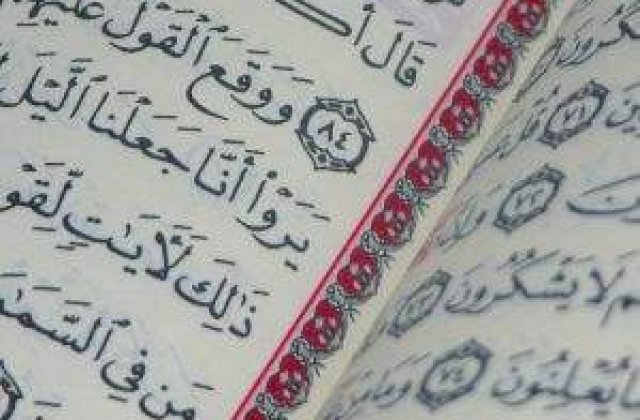 ٧١ قُلْ
ونَ ٧٢ وَإِ
هُمْ لَا يَشْكُرُونَ ٧٣
مَا يُعْلِنُونَ ٧٤ وَمَا مِنْ
قَالَ أَكَ
٨٤ وَوَقَعَ ٱلْقَوْلُ عَلَيْهِم
يَرَوْا۟ أَنَّا جَعَلْنَا ٱلَّيْلَ
ذَٰلِكَ لَءَايَٰتٍ لِّقَوْ
مَن فِي ٱلسَّمَٰوَ